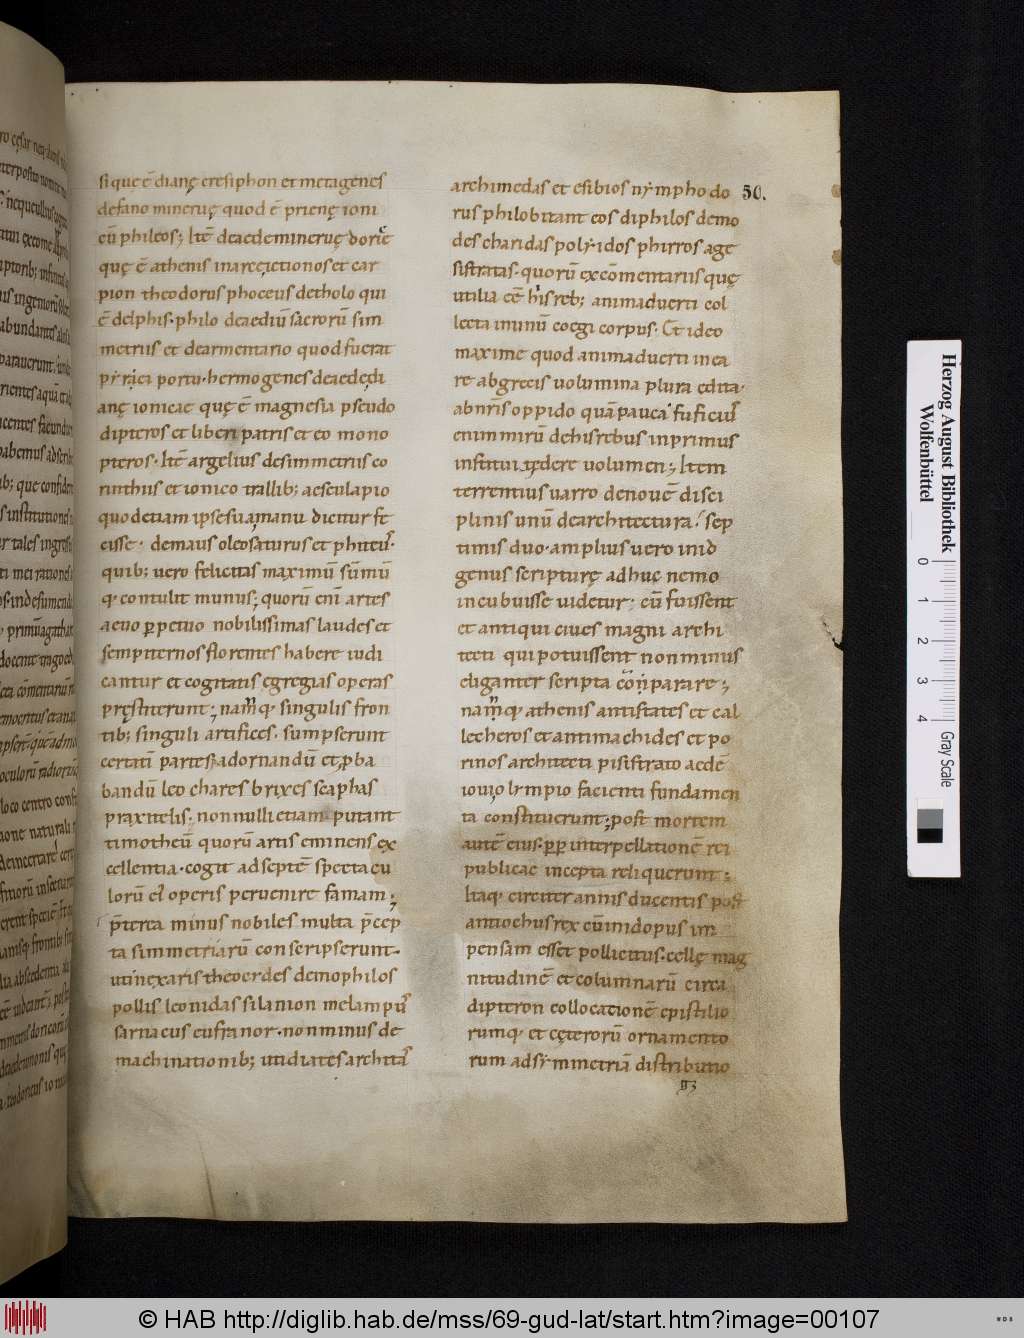 si que ē dianę cresiphon et metagenes
defano mineruę quod ē prienę ioni
cū phileos; Itē deaedemineruę doricę
quę ē athenis inarce ictionos et car
pion theodorus phoceus detholo qui
ē delphis. philo deaediū sacrorū sim
metriis et dearmentario quod fuerat
pyręi portu. hermogenes deaedędi
anę ionicae quę ē magnesia pseudo
dipteros et liberi patris et eo mono
pteros. Itē argelius desimmetriis co
rinthiis et ionico trallib; aesculapio
quod etiam ipse sua manu dicitur fe
cisse. demausoleo saturus et phiteus.
quib; uero felicitas maximū sūmū
q; contulit munus; quorū eni artes
aeuo ꝑpetuo nobilissimas laudes et
sempiternos florentes habere iudi
cantur et cogitatis egregias operas
pręstiterunt; namq; singulis fron
tib; singuli artifices. sumpserunt
certati partes adornandū et ꝓba
bandū leo chares brixes scaphas
praxitelis. nonnulli etiam putant
timotheū quorū artis eminens ex
cellentia. cogit adseptē spectacu
lorū ei operis peruenire famam;
p̄terea minus nobiles multa p̄cep
ta simmetriarū conscripserunt.
ut inexaris theocrdes demophilos
pollis leonidas silanion melampus
sarnacus eufranor. non minus de
machinationib; uti diates archita
50.
archimedas et esibios nympho do
rus philobitant eos diphilos demo
des charidas polyidos phirros age
sistratas. quorū excōmentariis quę
utilia ēē his reb; animaduerti col
lecta inunū coegi corpus. Et ideo
maxime quod animaduerti in ea
re abgrecis uolumina plura edita.
abnr̄is oppido quā pauca; fuficius
enim mirū dehis rebus inprimus
instituit edere uolumen; Item
terrentius uarro denouē disci
plinis unū dearchitectura; sep
timis duo. amplius uero inid
genus scripturę adhuc nemo
incubuisse uidetur; cū fuissent
et antiqui ciues magni archi
tecti qui potuissent non minus
eliganter scripta cōnparare;
namq; athenis antistates et cal
lecheros et antimachides et po
rinos architecti pisistrato aedē
iouiolympio facienti fundamen
ta constituerunt; post mortem
autē eius. ꝓꝑ interpellationē rei
publicae incepta reliquerunt;
Itaq; circiter annis ducentis post
antiochus rex cū inidopus im
pensam esset pollicitus. cellę mag
nitudinē et columnarū circa
dipteron collocationē epistilio
rumq; et cęterorū ornamento
rum adsymmetriā distributio
Herzog August Bibliothek
Wolfenbüttel
0 1 2 3 4
Gray Scale
© HAB http://diglib.hab.de/mss/69-gud-lat/start.htm?image=00107